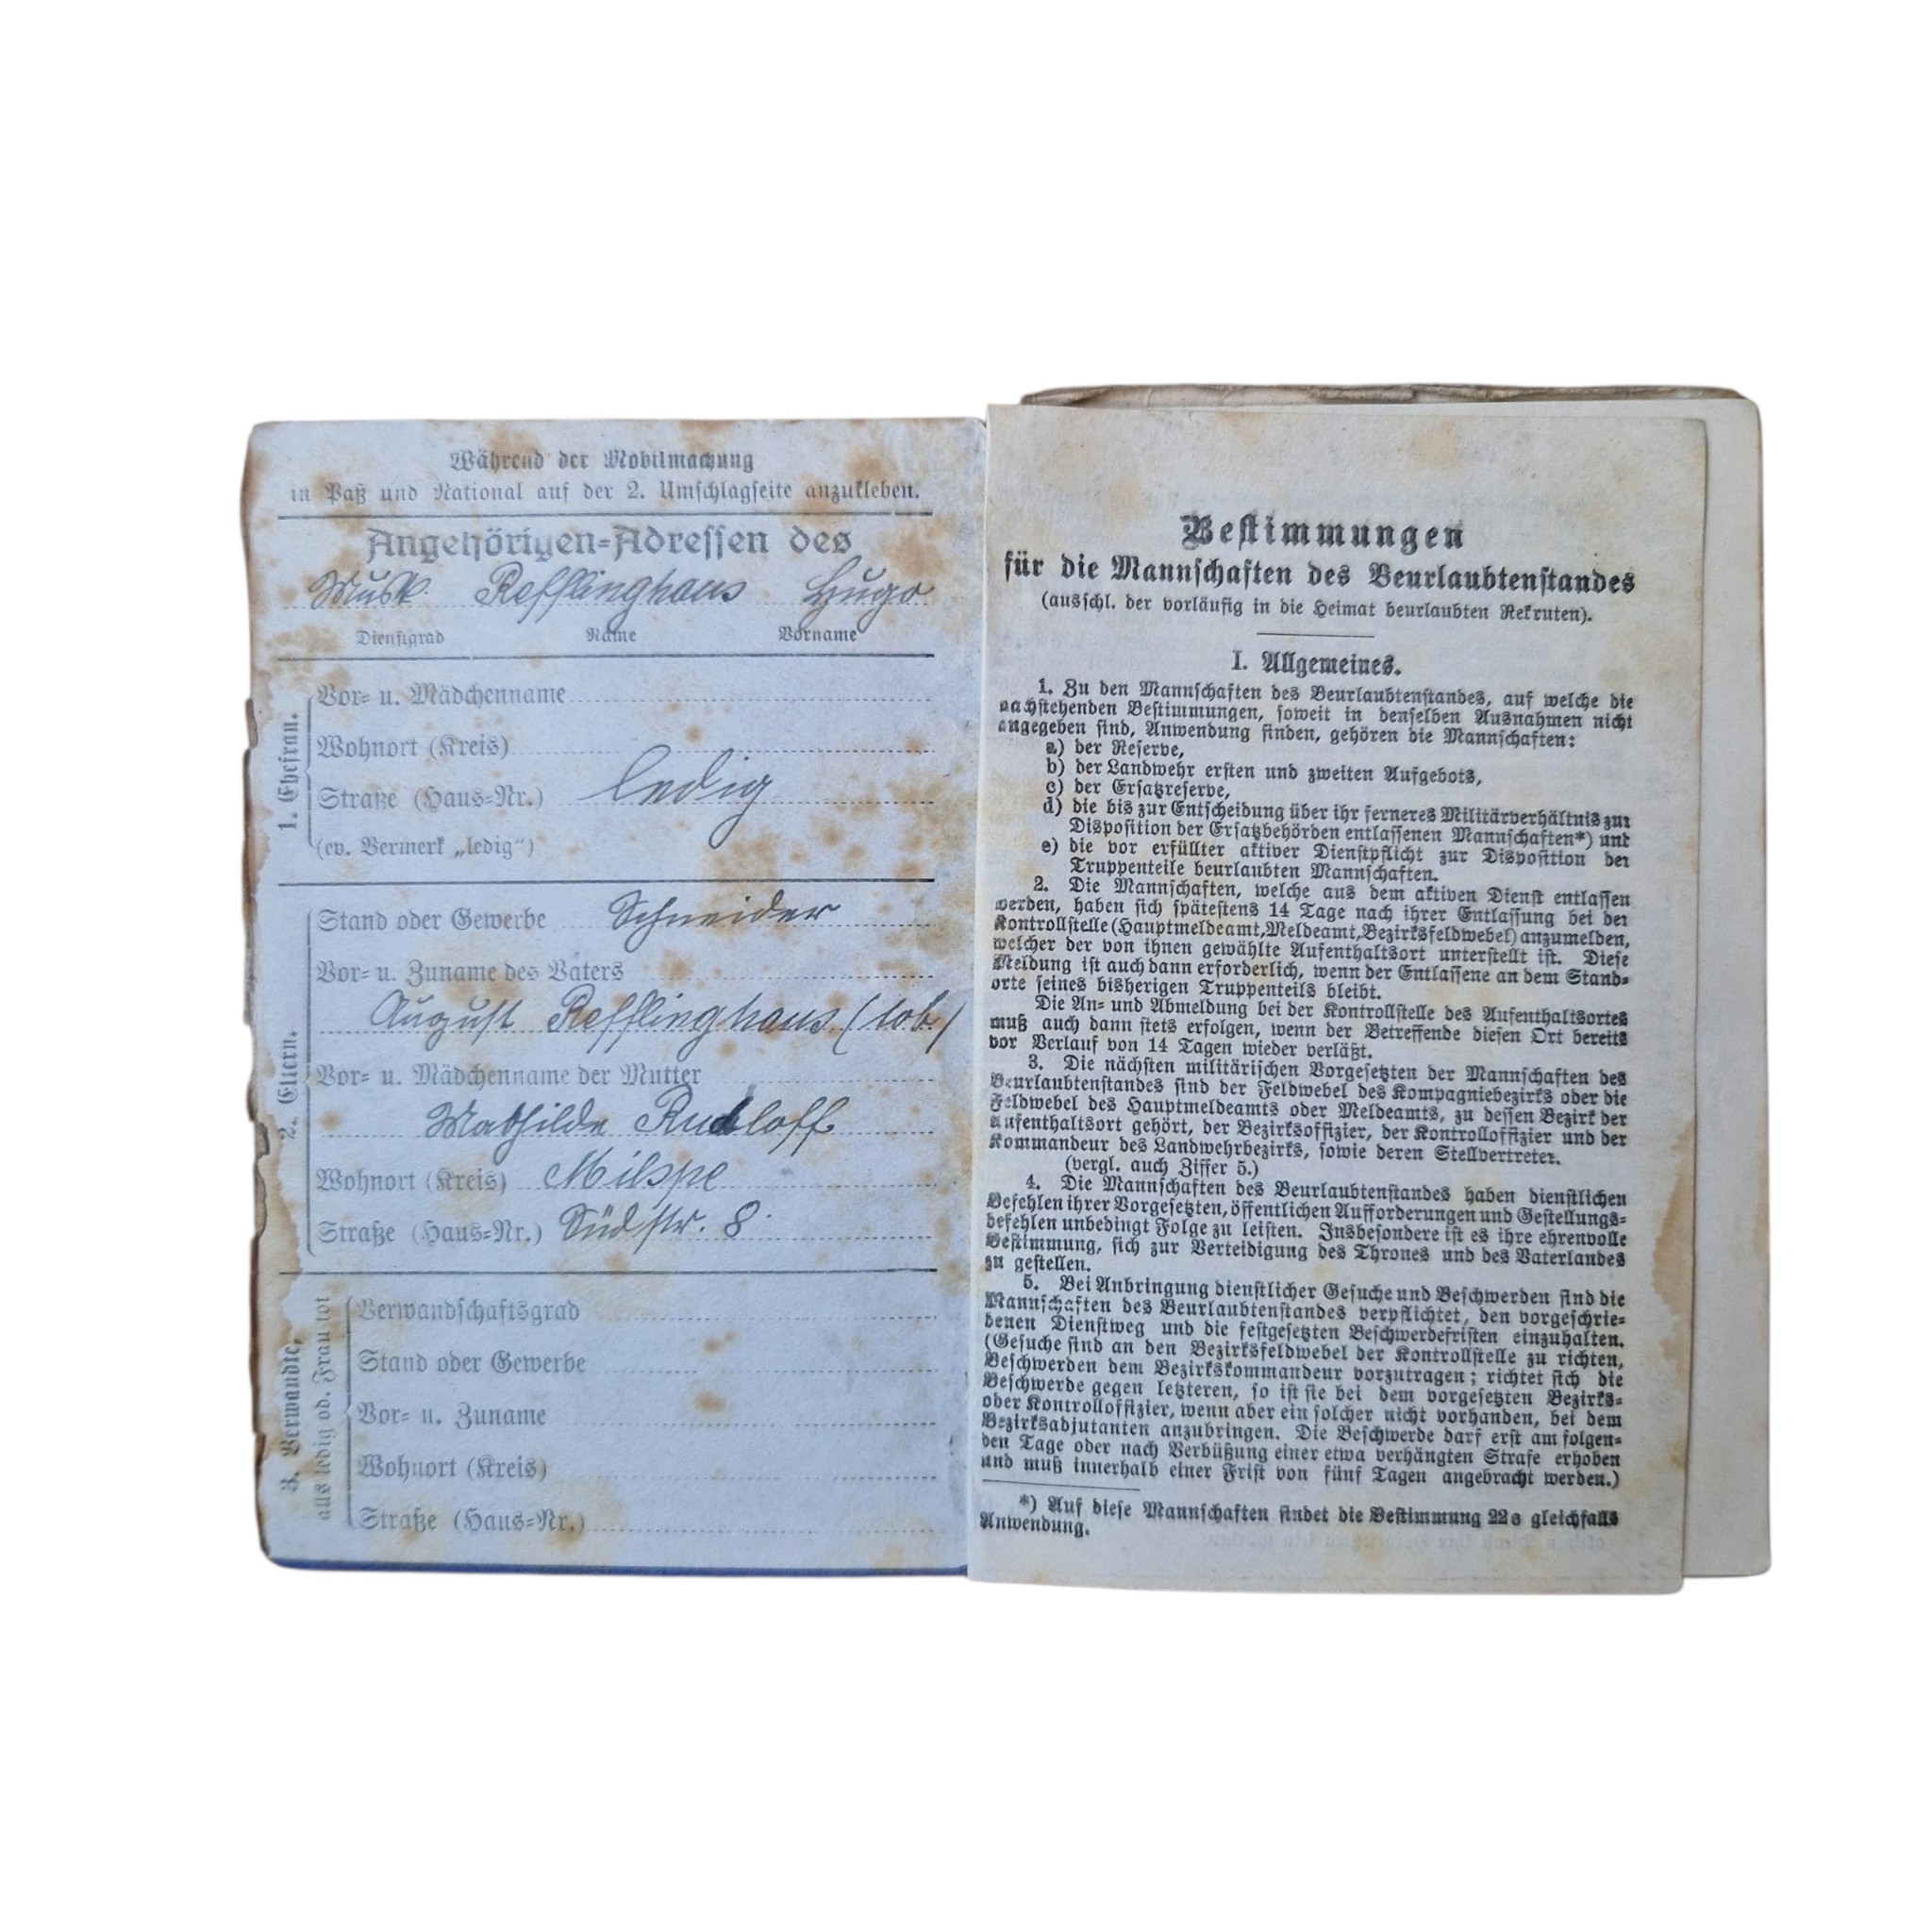 Während der Mobilmachung
in Paß und National auf der 2. Umschlagseite anzukleben.
Angehörigen-Adressen des
Musk. Refflinghaus Hugo
Dienstgrad Name Vorname
1. Ehefrau.
Vor- u. Mädchenname
Wohnort (Kreis)
Straße (Haus-Nr.) ledig
(ev. Vermerk „ledig“)
2. Eltern.
Stand oder Gewerbe Schneider
Vor- u. Zuname des Vaters
August Refflinghaus (tot.)
Vor- u. Mädchenname der Mutter
Mathilde Rudloff
Wohnort (Kreis) Milspe
Straße (Haus-Nr.) Südstr. 8.
3. Verwandte,
alls ledig od. Frau tot
Verwandschaftsgrad
Stand oder Gewerbe
Vor- u. Zuname
Wohnort (Kreis)
Straße (Haus-Nr.)
Bestimmungen
für die Mannschaften des Beurlaubtenstandes
(ausschl. der vorläufig in die Heimat beurlaubten Rekruten).
I. Allgemeines.
1. Zu den Mannschaften des Beurlaubtenstandes, auf welche die
nachstehenden Bestimmungen, soweit in denselben Ausnahmen nicht
angegeben sind, Anwendung finden, gehören die Mannschaften:
a) der Reserve,
b) der Landwehr ersten und zweiten Aufgebots,
c) der Ersatzreserve,
d) die bis zur Entscheidung über ihr ferneres Militärverhältnis zur
Disposition der Ersatzbehörden entlassenen Mannschaften*) und
e) die vor erfüllter aktiver Dienstpflicht zur Disposition der
Truppenteile beurlaubten Mannschaften.
2. Die Mannschaften, welche aus dem aktiven Dienst entlassen
werden, haben sich spätestens 14 Tage nach ihrer Entlassung bei der
Kontrollstelle (Hauptmeldeamt, Meldeamt, Bezirksfeldwebel) anzumelden,
welcher der von ihnen gewählte Aufenthaltsort unterstellt ist. Diese
Meldung ist auch dann erforderlich, wenn der Entlassene an dem Stand-
orte seines bisherigen Truppenteils bleibt.
Die An- und Abmeldung bei der Kontrollstelle des Aufenthaltsortes
muß auch dann stets erfolgen, wenn der Betreffende diesen Ort bereits
vor Verlauf von 14 Tagen wieder verläßt.
3. Die nächsten militärischen Vorgesetzten der Mannschaften des
Beurlaubtenstandes sind der Feldwebel des Kompagniebezirks oder die
Feldwebel des Hauptmeldeamts oder Meldeamts, zu dessen Bezirk der
Aufenthaltsort gehört, der Bezirksoffizier, der Kontrolloffizier und der
Kommandeur des Landwehrbezirks, sowie deren Stellvertreter.
(vergl. auch Ziffer 5.)
4. Die Mannschaften des Beurlaubtenstandes haben dienstlichen
Befehlen ihrer Vorgesetzten, öffentlichen Aufforderungen und Gestellungs-
befehlen unbedingt Folge zu leisten. Insbesondere ist es ihre ehrenvolle
Bestimmung, sich zur Verteidigung des Thrones und des Vaterlandes
zu gestellen.
5. Bei Anbringung dienstlicher Gesuche und Beschwerden sind die
Mannschaften des Beurlaubtenstandes verpflichtet, den vorgeschrie-
benen Dienstweg und die festgesetzten Beschwerdefristen einzuhalten.
(Gesuche sind an den Bezirksfeldwebel der Kontrollstelle zu richten,
Beschwerden dem Bezirkskommandeur vorzutragen; richtet sich die
Beschwerde gegen letzteren, so ist sie bei dem vorgesetzten Bezirks-
oder Kontrolloffizier, wenn aber ein solcher nicht vorhanden, bei dem
Bezirksadjutanten anzubringen. Die Beschwerde darf erst am folgen-
den Tage oder nach Verbüßung einer etwa verhängten Strafe erhoben
und muß innerhalb einer Frist von fünf Tagen angebracht werden.)
*) Auf diese Mannschaften findet die Bestimmung 22e gleichfalls
Anwendung.